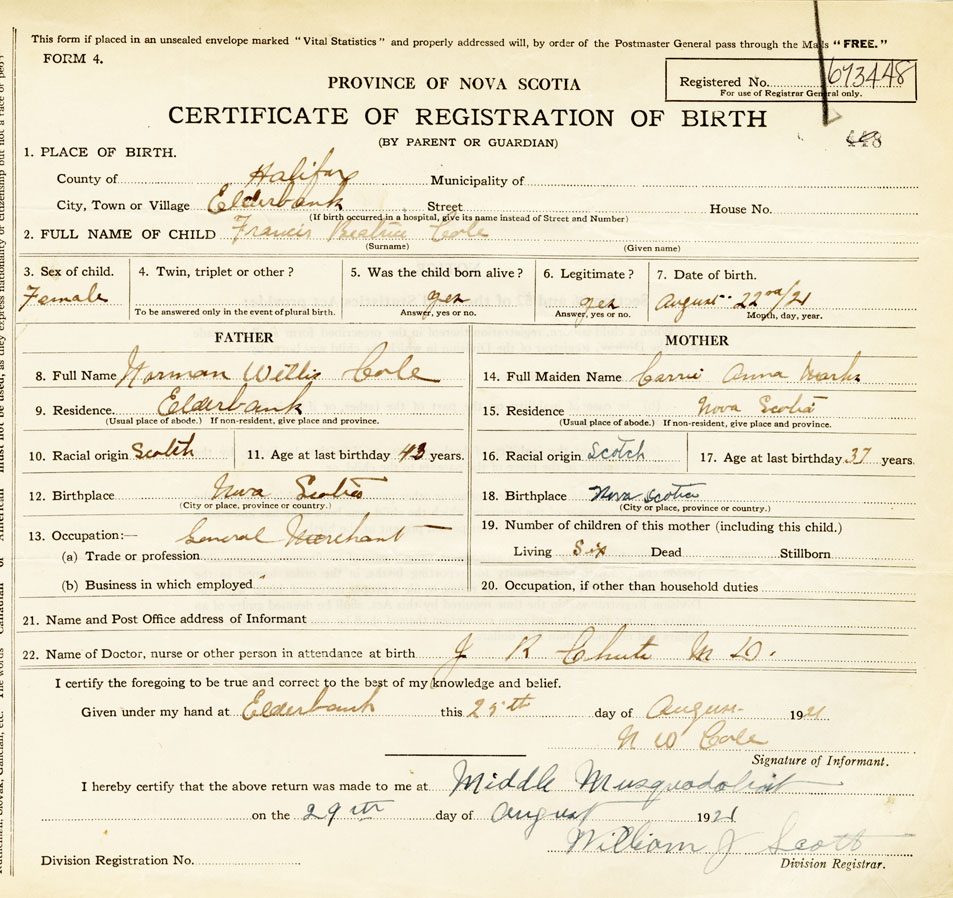 This form if placed in an unsealed envelope marked "Vital Statistics" and properly addressed will, by order of the Postmaster General pass through the Mails "FREE."
FORM 4.
PROVINCE OF NOVA SCOTIA
Registered No. 673448
For use of Registrar General only.
CERTIFICATE OF REGISTRATION OF BIRTH
(BY PARENT OR GUARDIAN)
448
1. PLACE OF BIRTH.
County of Halifax Municipality of
City, Town or Village Elderbank Street House No.
(If birth occurred in a hospital, give its name instead of Street and Number)
2. FULL NAME OF CHILD Francis Beatrice Cole
(Surname) (Given name)
3. Sex of child. 4. Twin, triplet or other? 5. Was the child born alive? 6. Legitimate? 7. Date of birth.
Female yes yes August 22nd/21
To be answered only in the event of plural birth. Answer, yes or no. Answer, yes or no. Month, day, year.
FATHER MOTHER
8. Full Name Norman Willis Cole 14. Full Maiden Name Carrie Anna
9. Residence. Elderbank 15. Residence Nova Scotia
(Usual place of abode.) If non-resident, give place and province. (Usual place of abode.) If non-resident, give place and province.
10. Racial origin Scotch 11. Age at last birthday 43 years. 16. Racial origin Scotch 17. Age at last birthday 37 years.
12. Birthplace Nova Scotia 18. Birthplace Nova Scotia
(City or place, province or country.) (City or place, province or country.)
13. Occupation:— General Merchant 19. Number of children of this mother (including this child.)
(a) Trade or profession Living Six Dead Stillborn
(b) Business in which employed " 20. Occupation, if other than household duties
21. Name and Post Office address of Informant
22. Name of Doctor, nurse or other person in attendance at birth J R Chute M D.
I certify the foregoing to be true and correct to the best of my knowledge and belief.
Given under my hand at Elderbank this day of August 1921
N W Cole
Signature of Informant.
I hereby certify that the above return was made to me at Middle Musquodoboit
on the 29th day of August 1921
William J Scott
Division Registration No. Division Registrar.